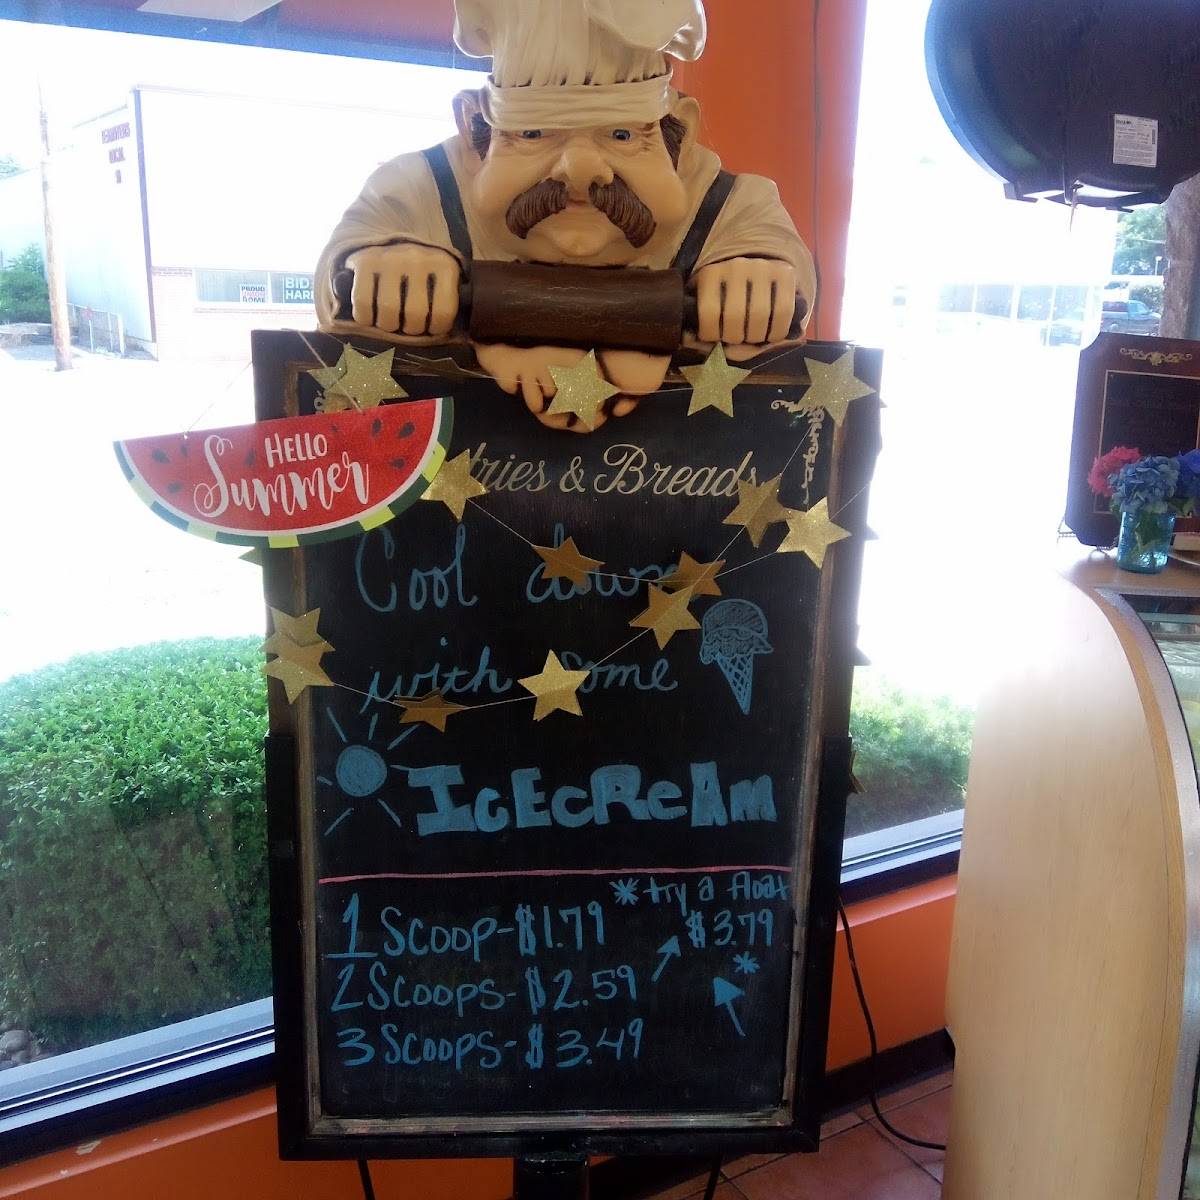 HELLO
Summer
tries & Breads
Cool down
with some
IcEcReAm
* try a float
1 Scoop-$1.79 $3.79
2 Scoops-$2.59 *
3 Scoops-$3.49
PROUD
UNION
HOME
BID
HARR